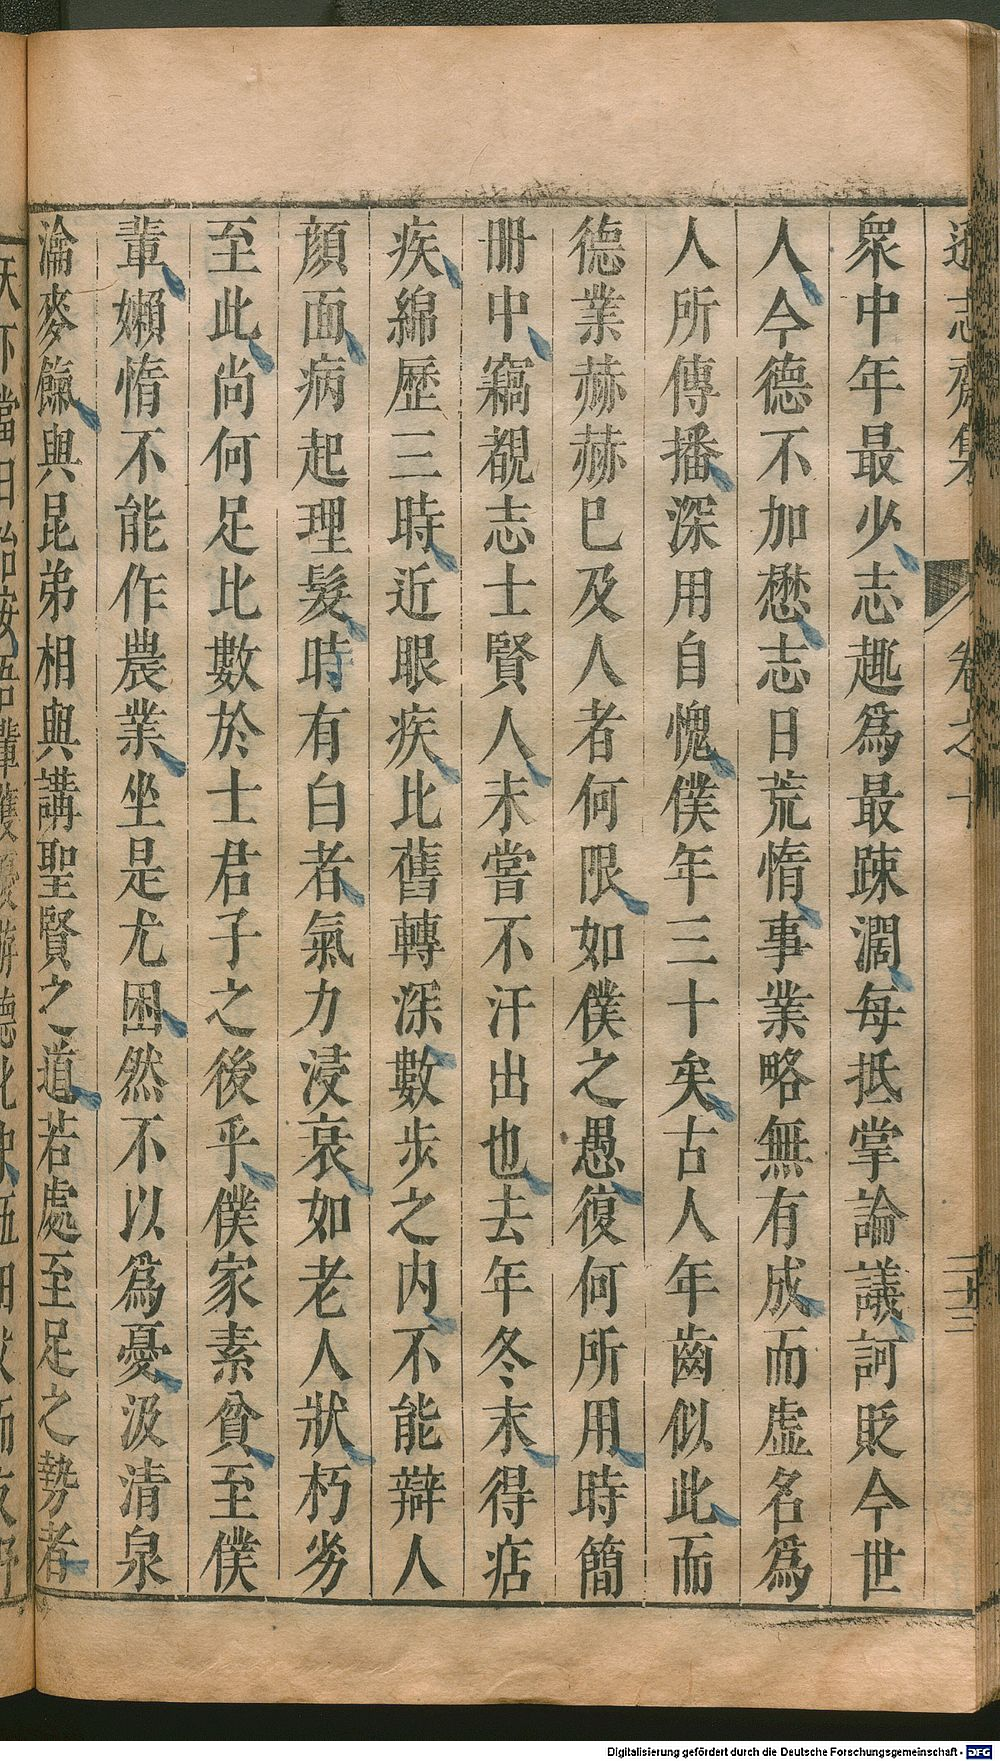 遜志齋集
卷之十
二十三
衆中年最少志趣爲最踈濶每抵掌論議訶貶今世
人今德不加懋志日荒惰事業略無有成而虛名爲
人所傳播深用自愧僕年三十矣古人年齒似此而
德業赫赫巳及人者何限如僕之愚復何所用時簡
册中竊覩志士賢人未嘗不汗出也去年冬末得痁
疾綿歷三時近眼疾比舊轉深數步之内不能辯人
顔面病起理髮時時有白者氣力浸衰如老人狀朽劣
至此尚何足比數於士君子之後乎僕家素貧至僕
輩嬾惰不能作農業坐是尤困然不以爲憂汲清泉
瀹麥餗與昆弟相與講聖賢之道若處至足之勢者
Digitalisierung gefördert durch die Deutsche Forschungsgemeinschaft - DFG